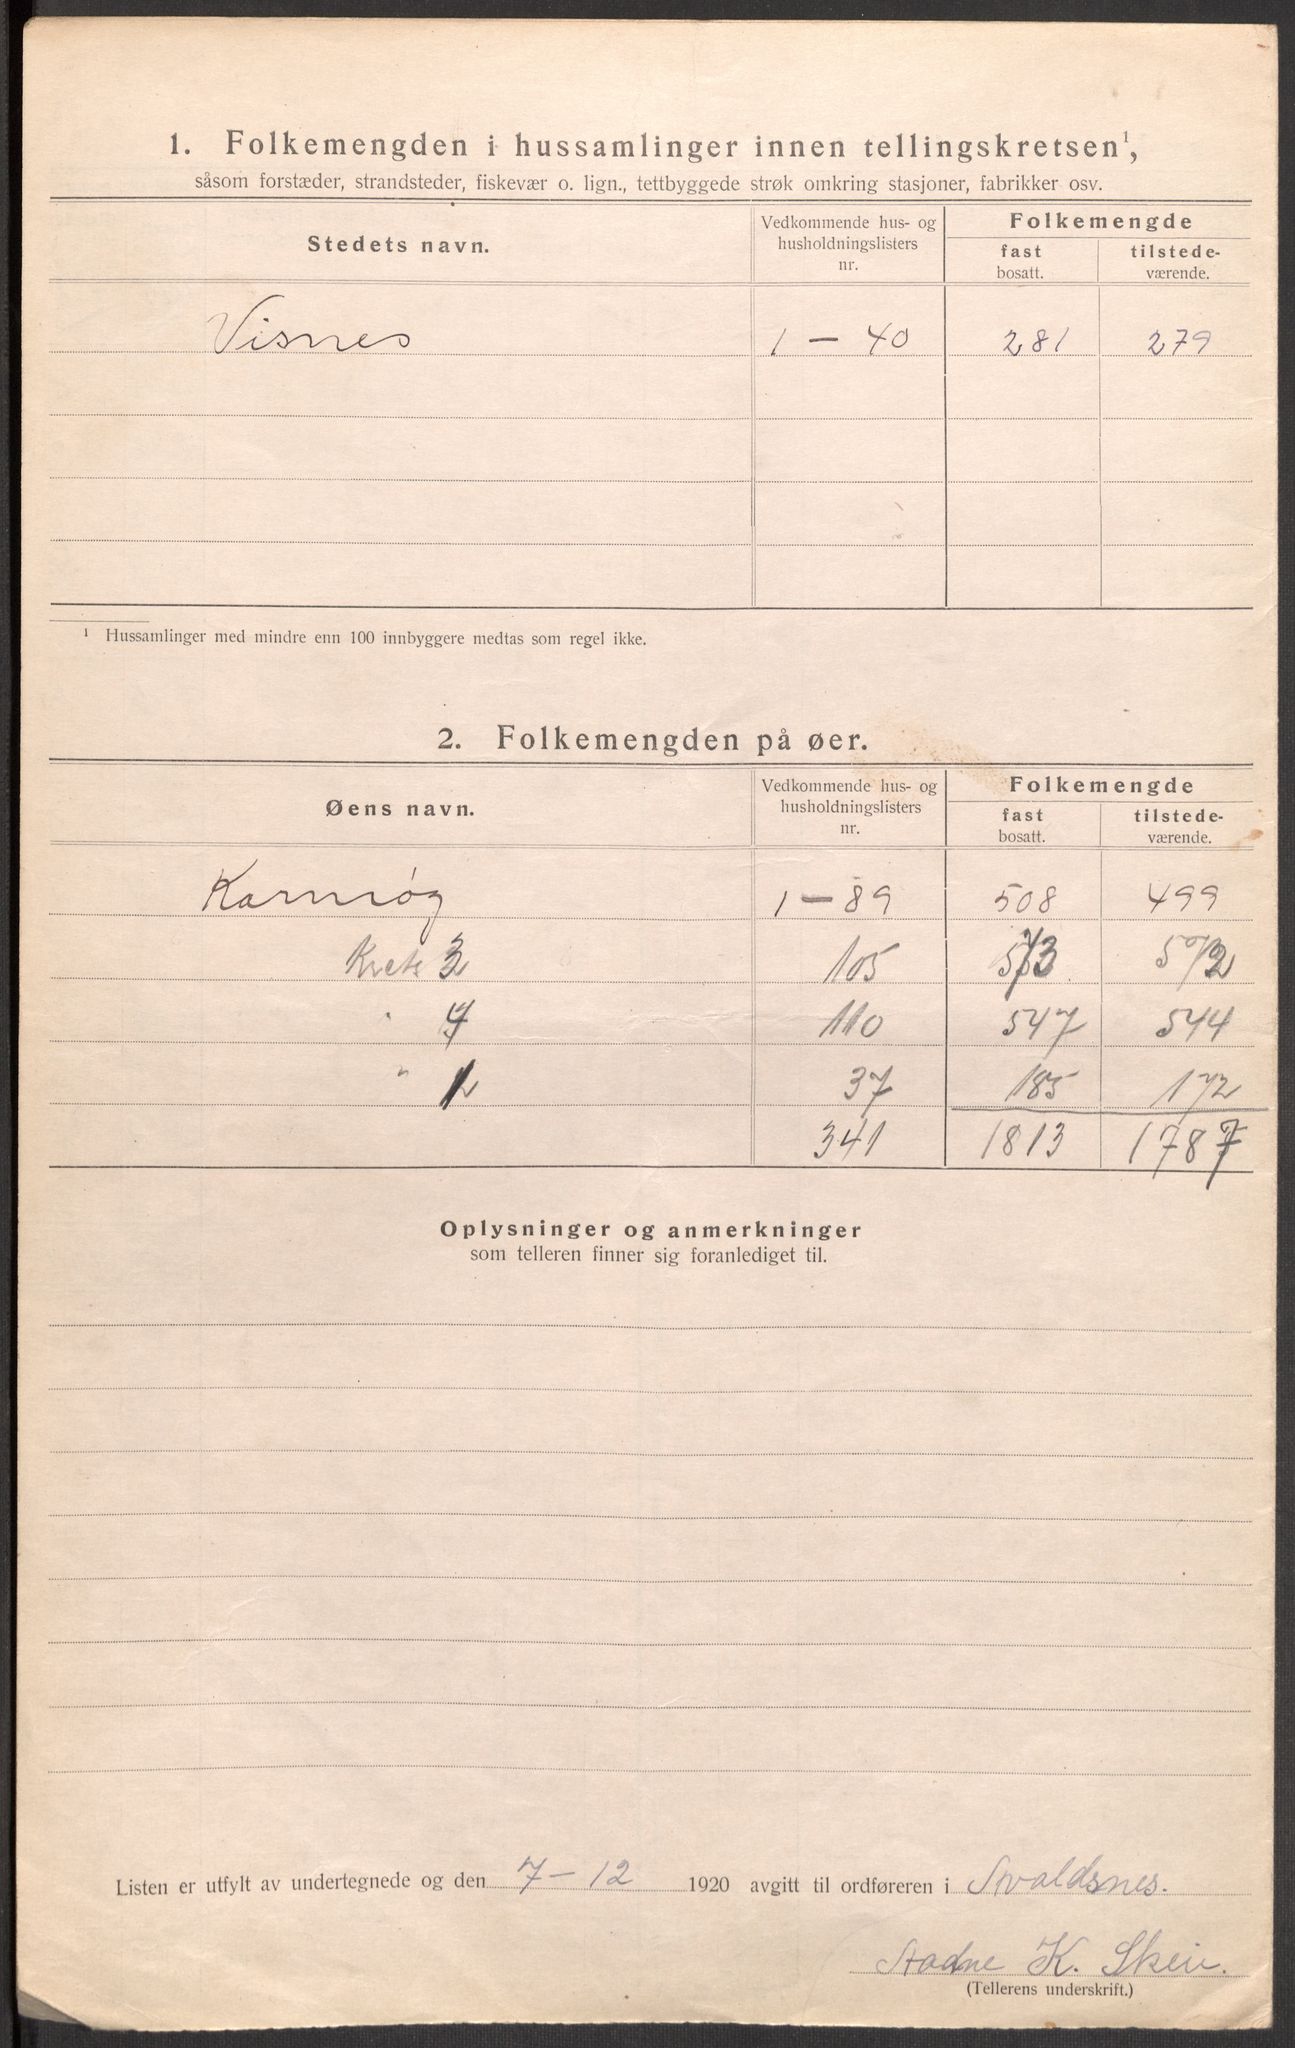 1. Folkemengden i hussamlinger innen tellingskretsen¹,
såsom forstæder, strandsteder, fiskevær o. lign., tettbyggede strøk omkring stasjoner, fabrikker osv.
Stedets navn. Vedkommende hus- og husholdningslisters nr. Folkemengde fast bosatt. tilstede-værende.
Visnes 1 — 40 281 279
¹ Hussamlinger med mindre enn 100 innbyggere medtas som regel ikke.
2. Folkemengden på øer.
Øens navn. Vedkommende hus- og husholdningslisters nr. Folkemengde fast bosatt. tilstede-værende.
Karmøy 1 — 89 508 499
Krets 3 105 573 572
" 4 110 547 544
" 37 185 172
341 1813 1787
Oplysninger og anmerkninger
som telleren finner sig foranlediget til.
Listen er utfylt av undertegnede og den 7 — 12 1920 avgitt til ordføreren i Avaldsnes.
K. Skeie.
(Tellerens underskrift.)